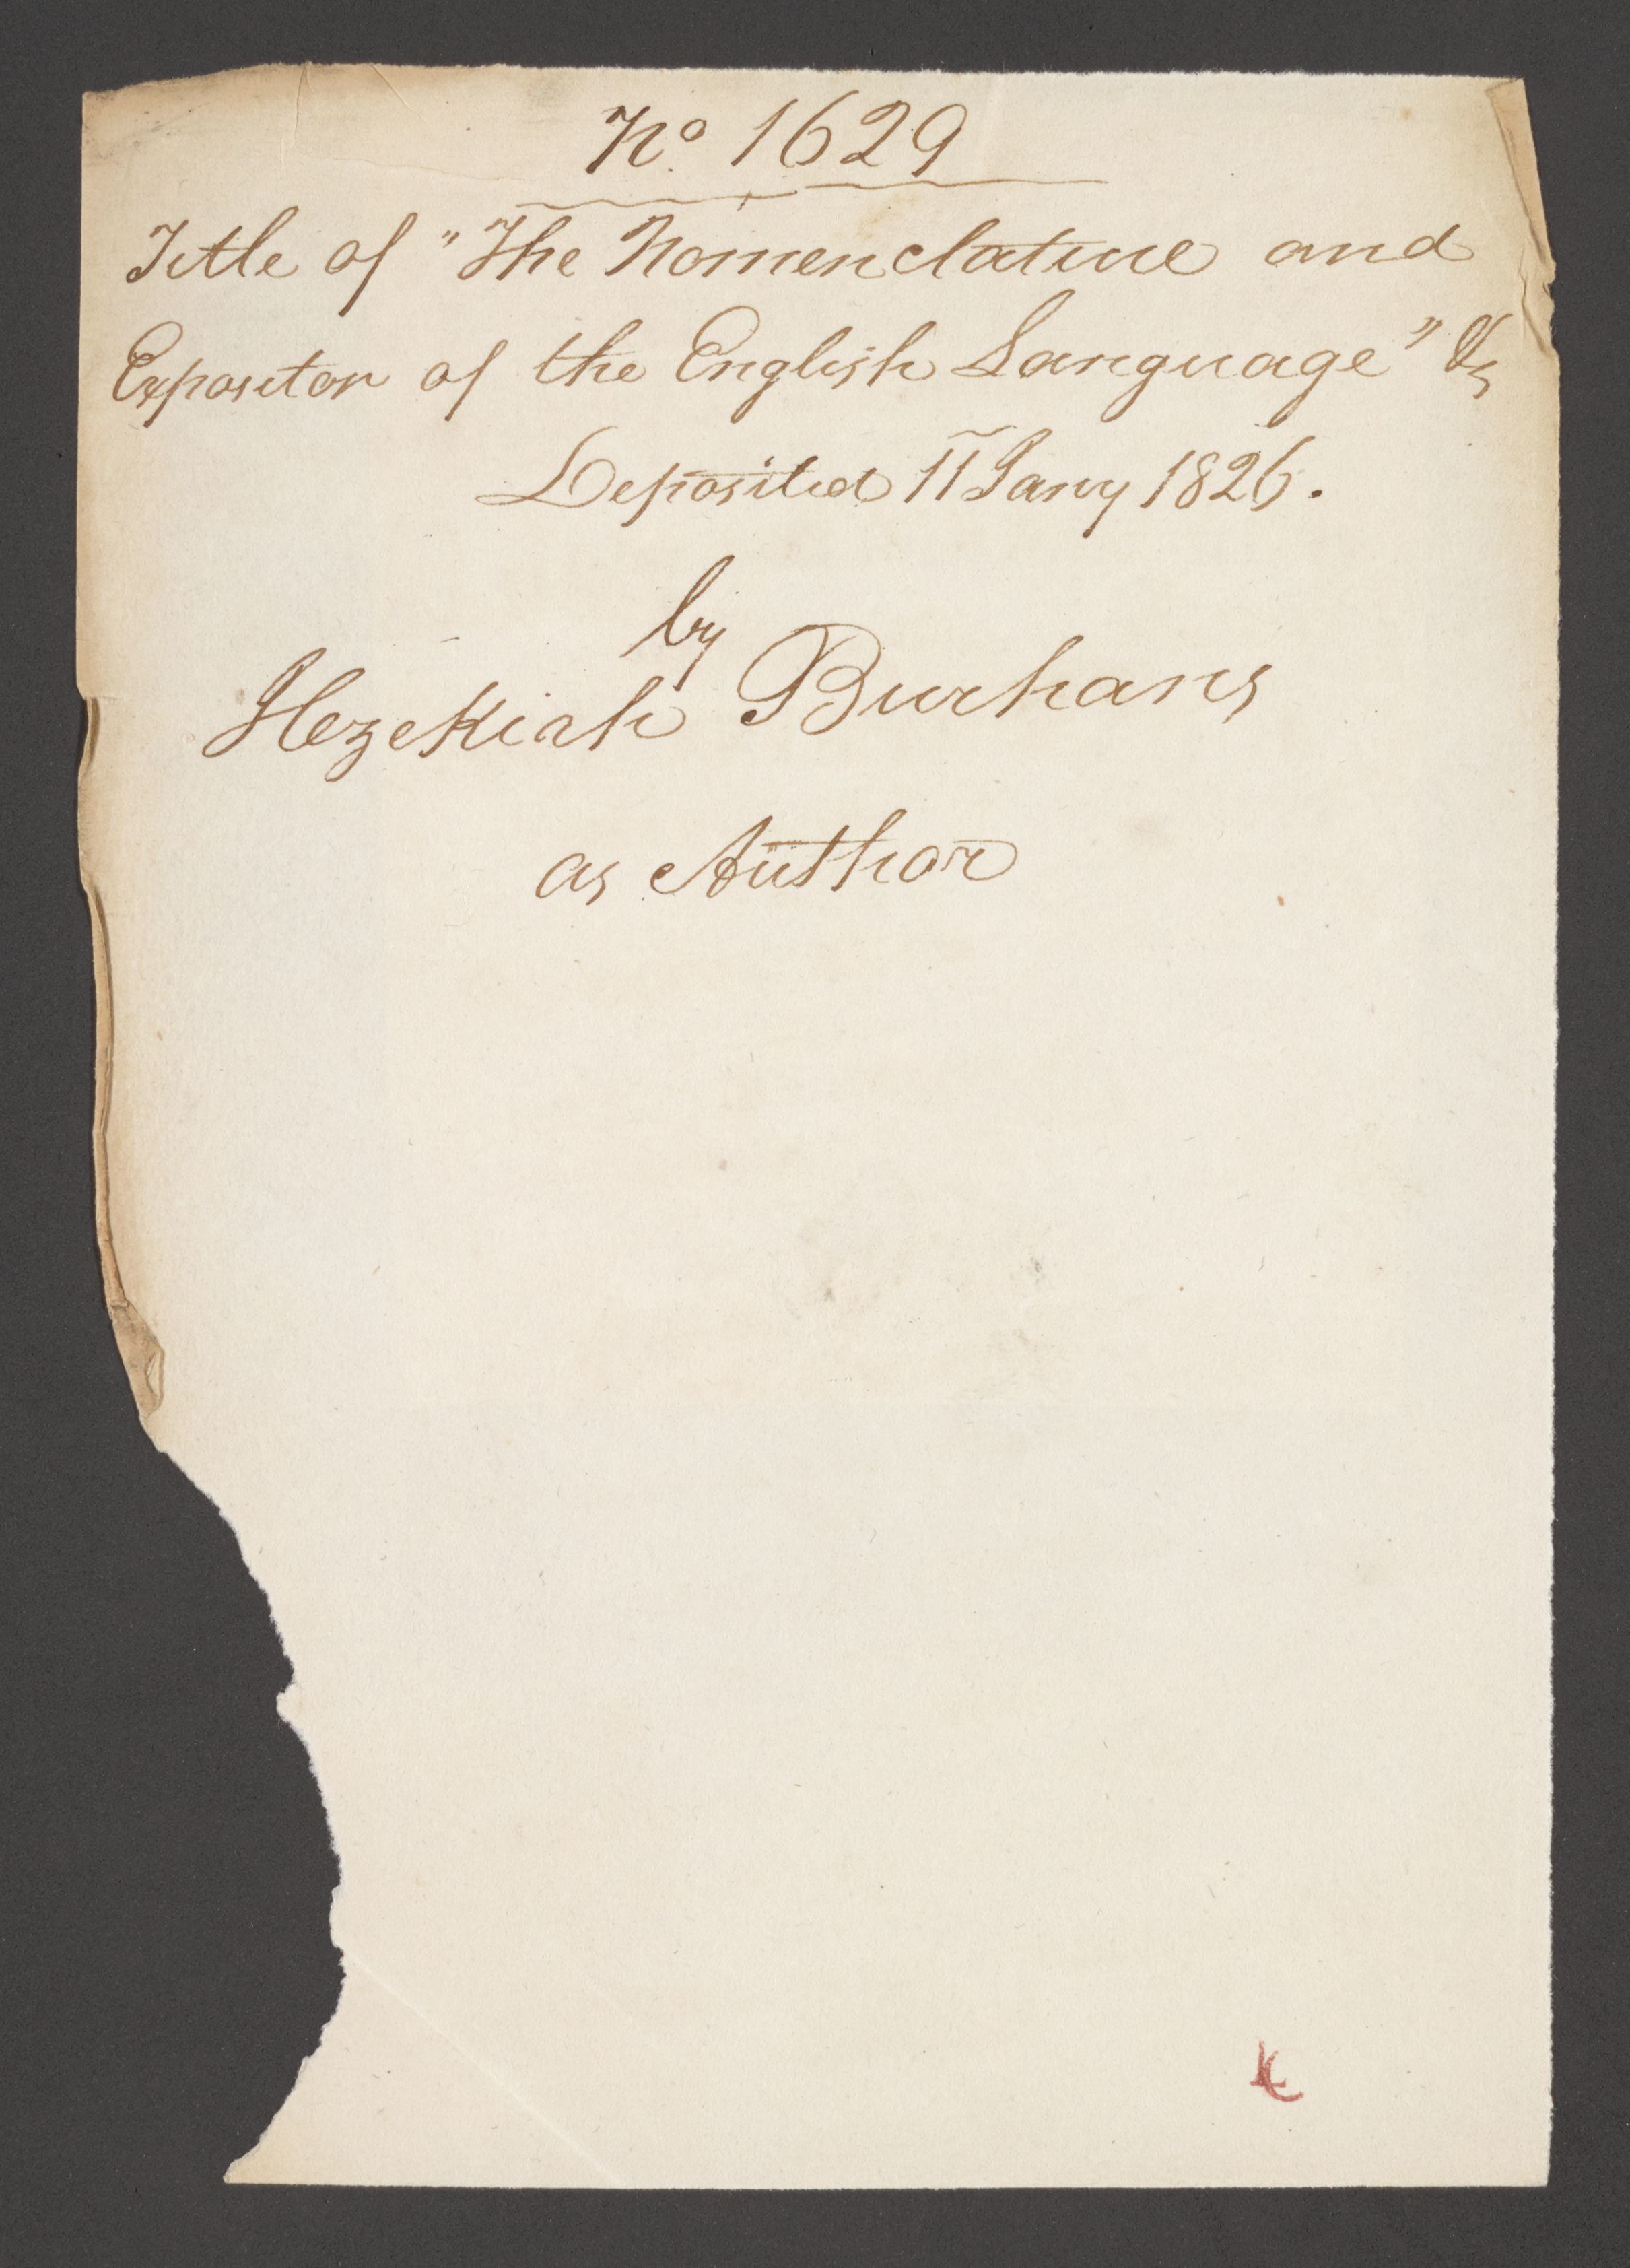 No. 1629
Title of "The Nomenclature and
Expositor of the English Language" &c
Deposited 11 Jany 1826.
by
Hezekiah Burhans
as Author